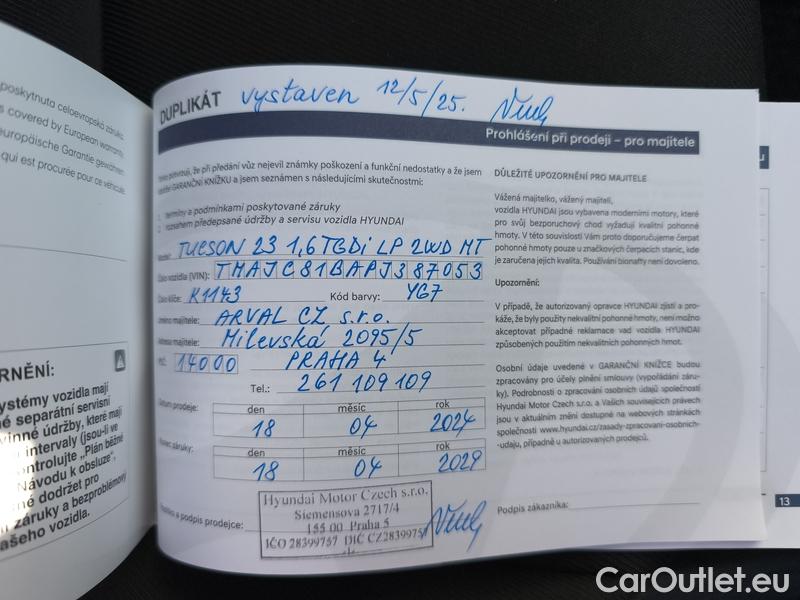 poskytnuta celoevropská záruka.
s covered by European warranty.
europäische Garantie gewähren
qui est procurée pour ce véhicule
RNĚNÍ:
systémy vozidla mají
né separátní servisní
vinné údržby, které mají
intervaly (jsou-li ve
ontrolujte „Plán běžné
Návodu k obsluze",
né dodržet pro
záruky a bezproblémový
ašeho vozidla.
DUPLIKÁT vystaven 12/5/25.
Prohlášení při prodeji – pro majitele
potvrzuji, že při předání vůz nejevil známky poškození a funkční nedostatky a že jsem
GARANČNÍ KNÍŽKU a jsem seznámen s následujícími skutečnostmi:
termíny a podmínkami poskytované záruky
rozsahem předepsané údržby a servisu vozidla HYUNDAI
Model: TUCSON 23 1,6 TGDi LP 2WD MT
Číslo vozidla (VIN): TMAJC81BAPJ387053
Číslo klíče: K1143 Kód barvy: Y67
Jméno majitele: ARVAL CZ s.r.o.
Adresa majitele: Milevská 2095/5
PSČ: 14000 PRAHA 4
Tel.: 261 109 109
Datum prodeje: den měsíc rok
18 04 2024
Konec záruky: den měsíc rok
18 04 2029
Razítko a podpis prodejce:
Hyundai Motor Czech s.r.o.
Siemensova 2717/4
155 00 Praha 5
IČO 28399757 DIČ CZ28399757
DŮLEŽITÉ UPOZORNĚNÍ PRO MAJITELE
Vážená majitelko, vážený majiteli,
vozidla HYUNDAI jsou vybavena moderními motory, které
pro svůj bezporuchový chod vyžadují kvalitní pohonné
hmoty. V této souvislosti Vám proto doporučujeme čerpat
pohonné hmoty pouze u značkových čerpacích stanic, kde
je zaručena jejich kvalita. Používání bionafty není dovoleno.
Upozornění:
V případě, že autorizovaný opravce HYUNDAI zjistí a pro-
káže, že byly použity nekvalitní pohonné hmoty, není možno
akceptovat případné reklamace vad vozidla HYUNDAI
způsobených použitím nekvalitních pohonných hmot.
Osobní údaje uvedené v GARANČNÍ KNÍŽCE budou
zpracovány pro účely plnění smlouvy (vypořádání záru-
ky). Podrobnosti o zpracování osobních údajů společností
Hyundai Motor Czech s.r.o. a Vašich souvisejících právech
jsou v aktuálním znění dostupné na webových stránkách
společnosti www.hyundai.cz/zasady-zpracovani-osobnich-
-udaju, případně u autorizovaných prodejců.
Podpis zákazníka:
13
CarOutlet.eu